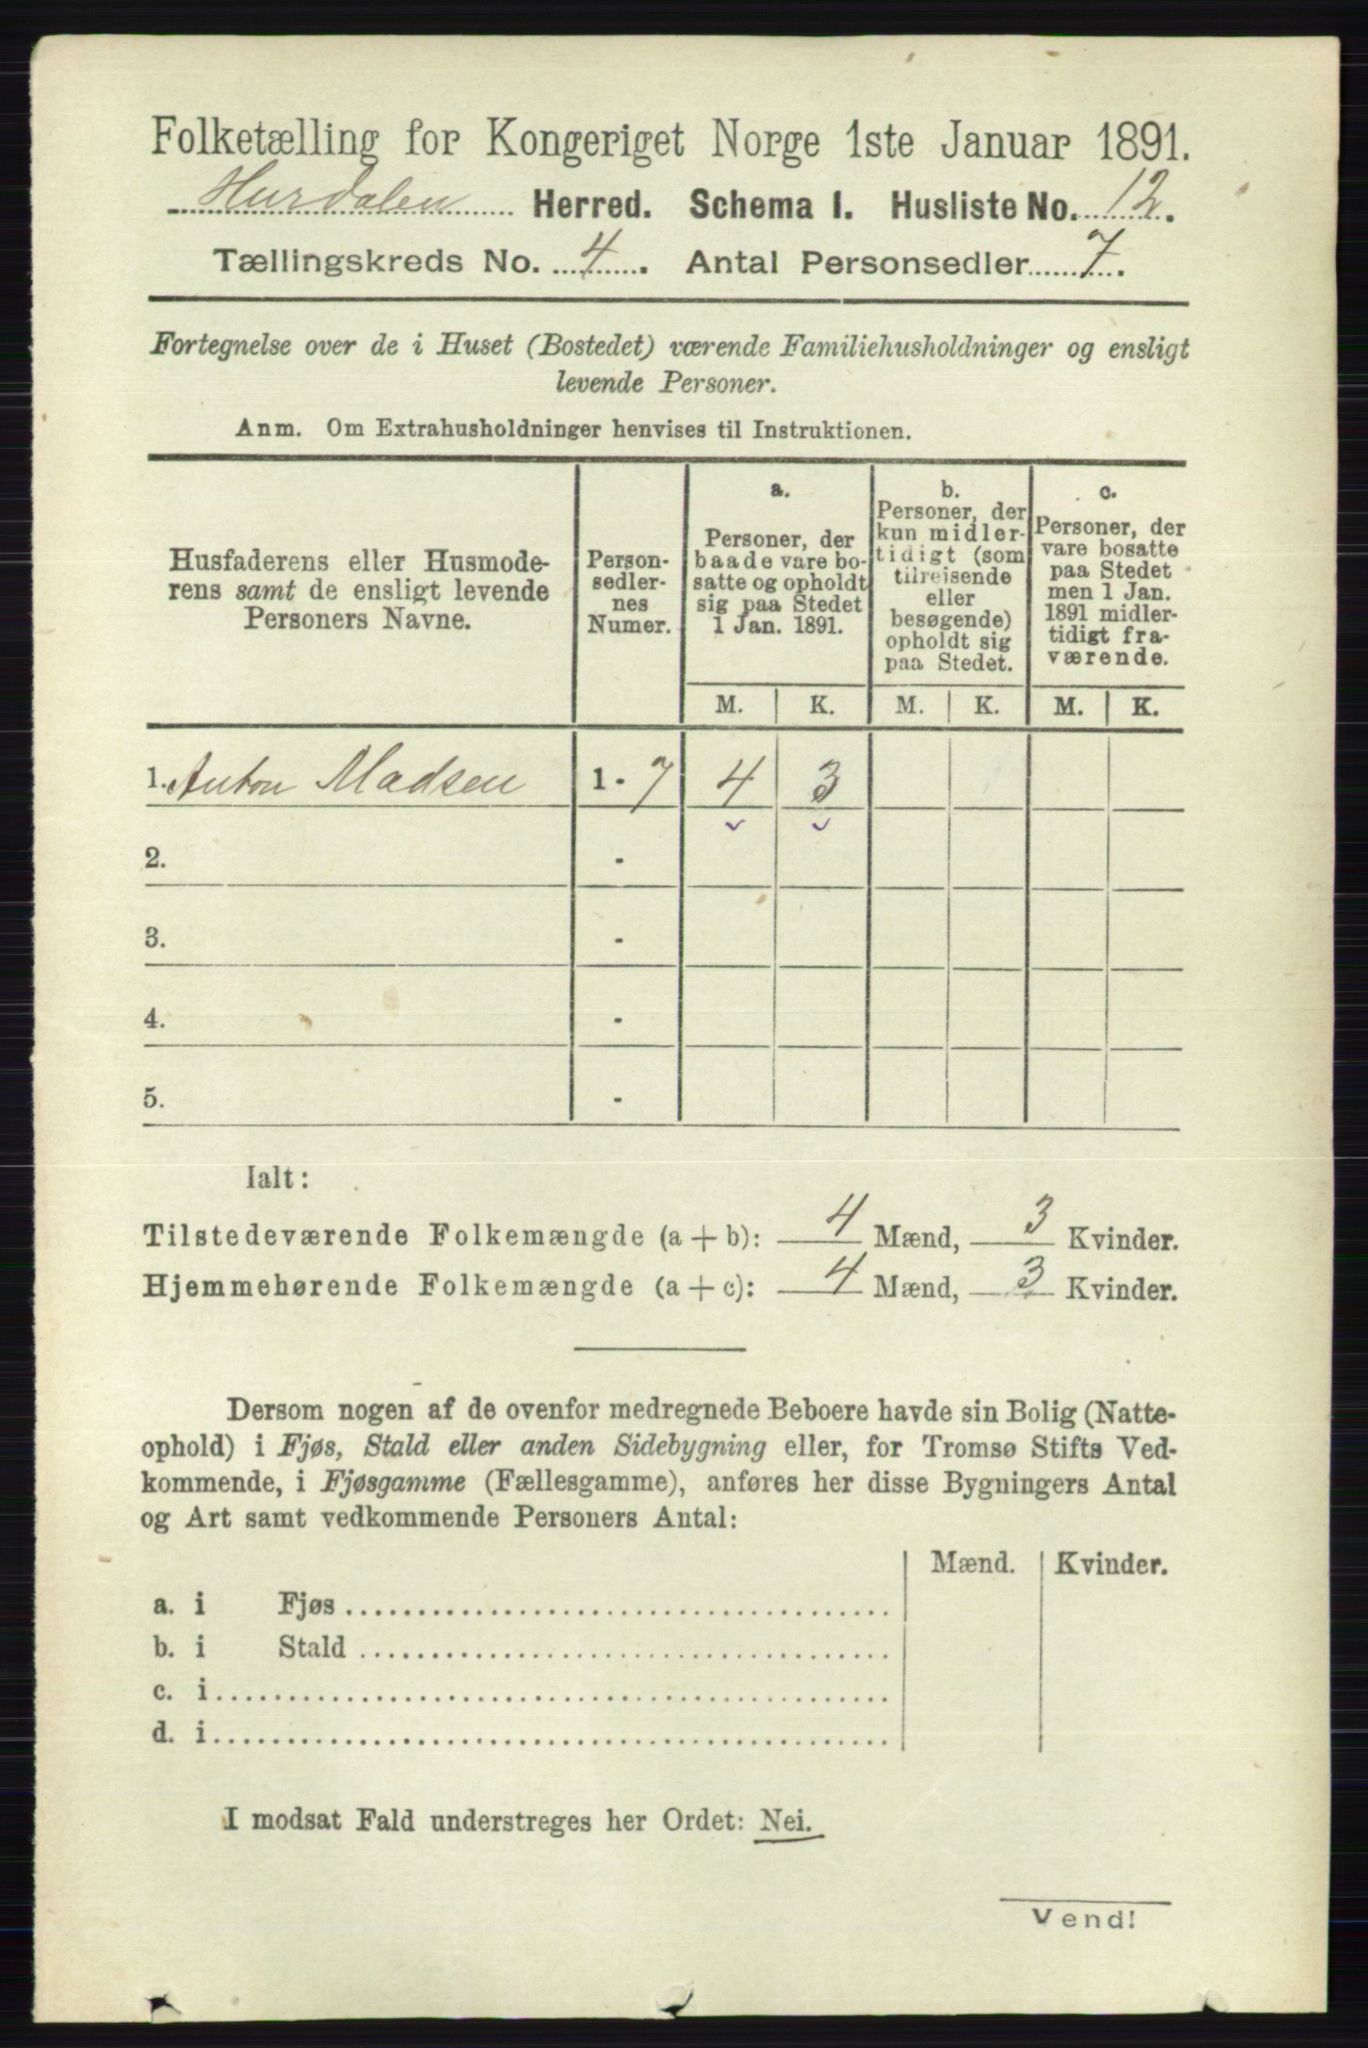 Folketælling for Kongeriget Norge 1ste Januar 1891.
Hurdalen Herred. Schema I. Husliste No. 12.
Tællingskreds No. 4. Antal Personsedler 7.
Fortegnelse over de i Huset (Bostedet) værende Familiehusholdninger og ensligt
levende Personer.
Anm. Om Extrahusholdninger henvises til Instruktionen.
Husfaderens eller Husmode-
rens samt de ensligt levende
Personers Navne.
Person-
sedler-
nes
Numer.
a.
Personer, der
baade vare bo-
satte og opholdt
sig paa Stedet
1 Jan. 1891.
b.
Personer, der
kun midler-
tidigt (som
tilreisende
eller
besøgende)
opholdt sig
paa Stedet.
c.
Personer, der
vare bosatte
paa Stedet
men 1 Jan.
1891 midler-
tidigt fra-
værende.
M. K. M. K. M. K.
1. Anton Madsen 1 - 7 4 3
2. -
3. -
4. -
5. -
Ialt:
Tilstedeværende Folkemængde (a + b): 4 Mænd, 3 Kvinder.
Hjemmehørende Folkemængde (a + c): 4 Mænd, 3 Kvinder.
Dersom nogen af de ovenfor medregnede Beboere havde sin Bolig (Natte-
ophold) i Fjøs, Stald eller anden Sidebygning eller, for Tromsø Stifts Ved-
kommende, i Fjøsgamme (Fællesgamme), anføres her disse Bygningers Antal
og Art samt vedkommende Personers Antal:
Mænd. Kvinder.
a. i Fjøs
b. i Stald
c. i
d. i
I modsat Fald understreges her Ordet: Nei.
Vend!